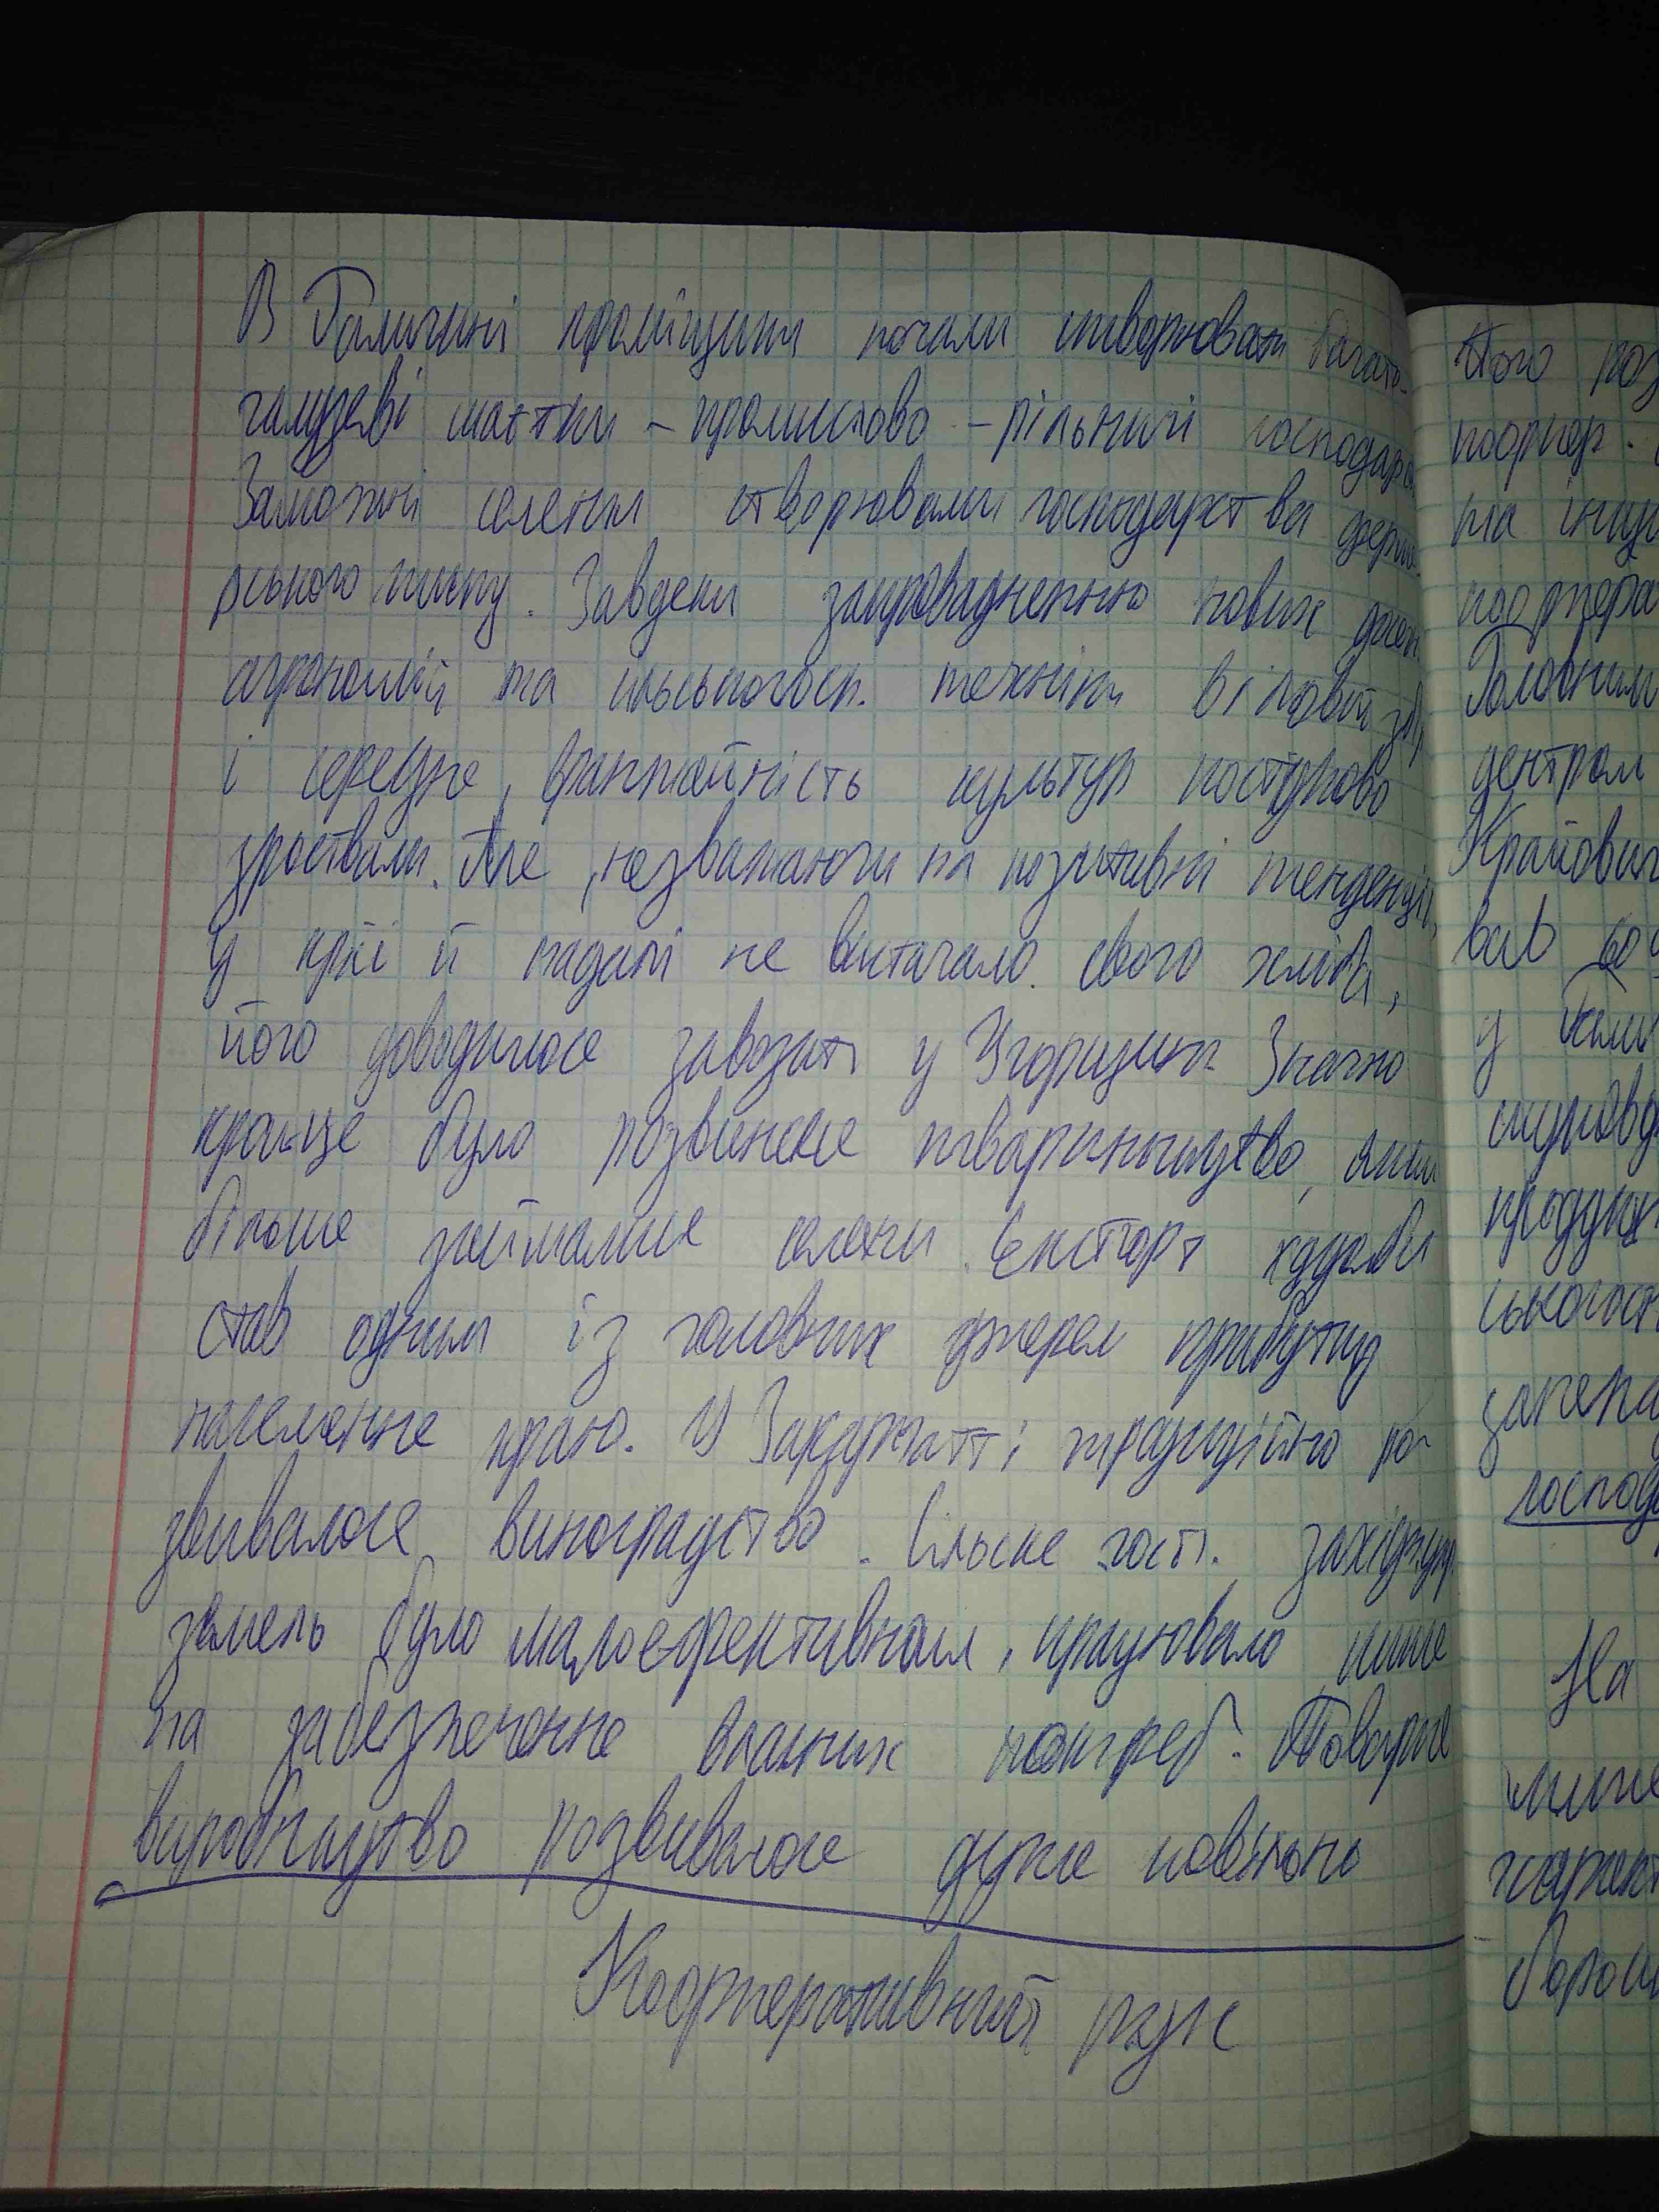 В Галичині поміщики почали створювати багато-
галузеві маєтки - промислово - рільничі господарс
Заможні селени створювали господарства ферме-
рського типу. Завдеки запровадженню нових досяг.
агрономій та сільського. техніки валовий зб,
і середне, врожайність культур поступово
зроствали. Але, незважаючи на позитивні тенденції,
у краї й надалі не вистачало свого хліба,
його доводилосе завозити у Угорщини Значно
краще було розвинене тваринництво, яким
більше займалисе селени. Експорт худоби
став одним із головних джерел прибутку
населенне краю. У Закарпатті традиційно ро
звивалосе виноградство. Сільське госп. західноукр.
земель було малоефективном, працювало лише
на забезпеченне власних потреб. Товарне
виробництво розвивалосе дуже повільно
Кооперативний рух
Його роз
коопер.
та інш
коопера
Головним
центром
Крайовий
вав со
у Гали
продук
ського
госпо
На
лише